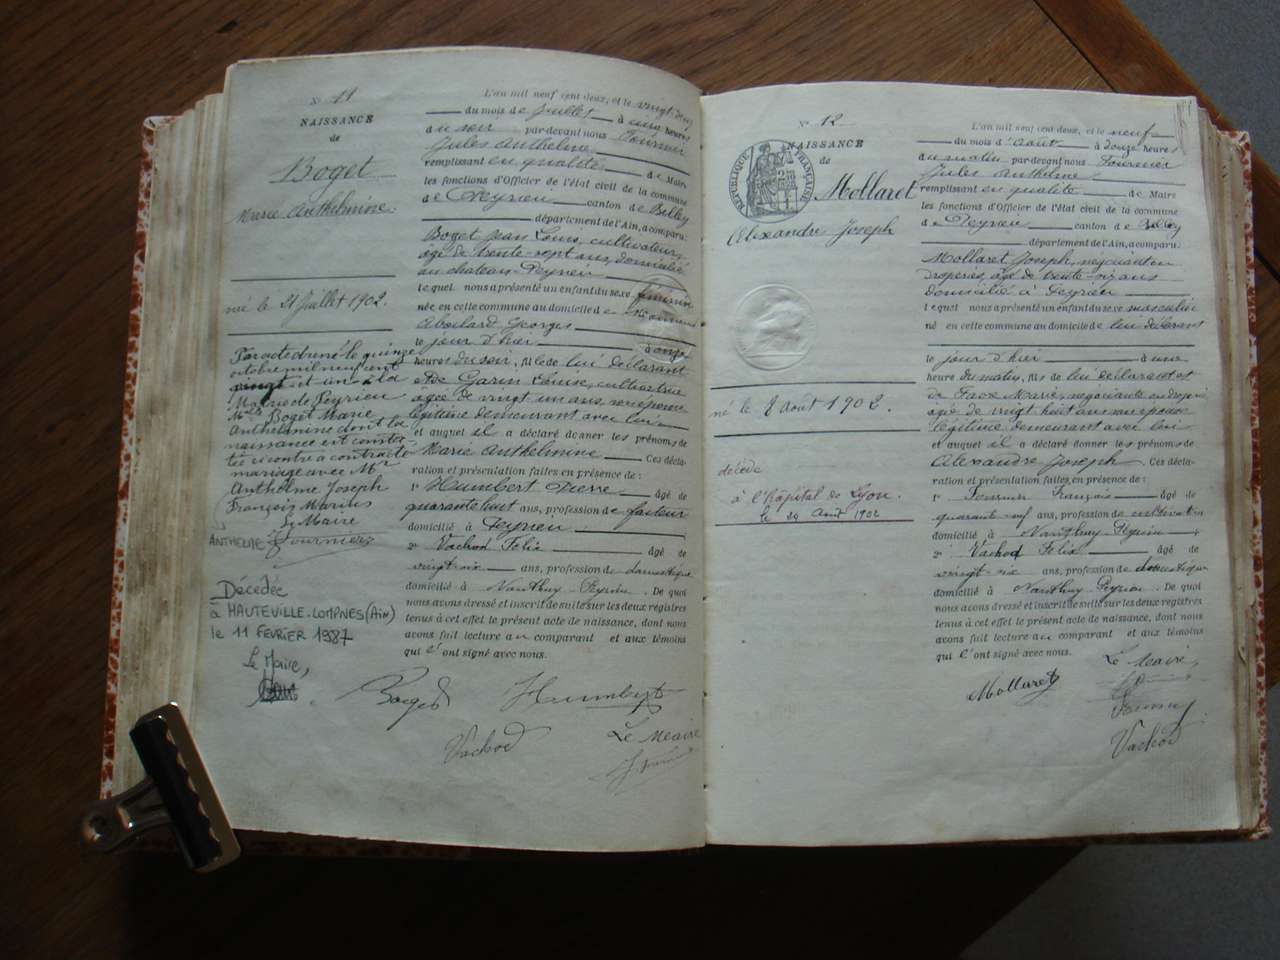 N° 11
NAISSANCE
de
Boget
Marie Anthelmine
née le 21 Juillet 1902.
Par acte dressé le quinze
octobre mil neuf cent
vingt et un à la
Mairie de Peyrieu
Mlle Boget Marie
Anthelmine dont la
naissance est consta-
tée ci contre a contracté
mariage avec Mr
Anthelme Joseph
François Marius
Le Maire
ANTHELME Fournier
Décédée
à HAUTEVILLE-LOMPNES (Ain)
le 11 FEVRIER 1987
Le Maire,
L'an mil neuf cent deux, et le vingt-deux
du mois de Juillet à cinq heures
du soir par-devant nous Fournier
Jules Anthelme
remplissant en qualité de Maire
les fonctions d'Officier de l'état civil de la commune
de Peyrieu canton de Belley
département de l'Ain, a comparu
Boget Jean Louis, cultivateur,
âgé de trente-sept ans, domicilié
au chateau-Peyrieu
lequel nous a présenté un enfant du sexe féminin
née en cette commune au domicile de
Aboulard Georges
le jour d'hier à onze
heures du soir, fille de lui déclarant
et de Garin Louise, cultivatrice
âgée de vingt un ans, son épouse
légitime demeurant avec lui
et auquel il a déclaré donner les prénoms de
Marie Anthelmine Ces décla-
ration et présentation faites en présence de :
1° Humbert Pierre âgé de
quarante huit ans, profession de facteur
domicilié à Peyrieu
2° Vachod Félix âgé de
vingt-six ans, profession de domestique
domicilié à Nanthuy-Peyrieu. De quoi
nous avons dressé et inscrit de suite sur les deux registres
tenus à cet effet le présent acte de naissance, dont nous
avons fait lecture au comparant et aux témoins
qui l'ont signé avec nous.
Boget Humbert
Vachod Le Maire
N° 12
NAISSANCE
de
RÉPUBLIQUE FRANÇAISE
Mollaret
Alexandre Joseph
né le 8 Août 1902.
décédé
à l'hôpital de Lyon.
le 29 Août 1902
L'an mil neuf cent deux, et le neuf
du mois d'Août à douze heures
du matin par-devant nous Fournier
Jules Anthelme
remplissant en qualité de Maire
les fonctions d'Officier de l'état civil de la commune
de Peyrieu canton de Belley
département de l'Ain, a comparu
Mollaret Joseph, négociant en
draperies, âgé de trente-six ans
domicilié à Peyrieu
lequel nous a présenté un enfant du sexe masculin
né en cette commune au domicile de lui déclarant
le jour d'hier à une
heure du matin, fils de lui déclarant et
de Marie, négociante en draperies
âgée de vingt huit ans son épouse
légitime demeurant avec lui
et auquel il a déclaré donner les prénoms de
Alexandre Joseph. Ces décla-
ration et présentation faites en présence de :
1° François âgé de
quarante-neuf ans, profession de cultivateur
domicilié à Nanthuy-Peyrieu
2° Vachod Félix âgé de
vingt-six ans, profession de domestique
domicilié à Nanthuy-Peyrieu. De quoi
nous avons dressé et inscrit de suite sur les deux registres
tenus à cet effet le présent acte de naissance, dont nous
avons fait lecture au comparant et aux témoins
qui l'ont signé avec nous.
Le Maire,
Mollaret
Vachod